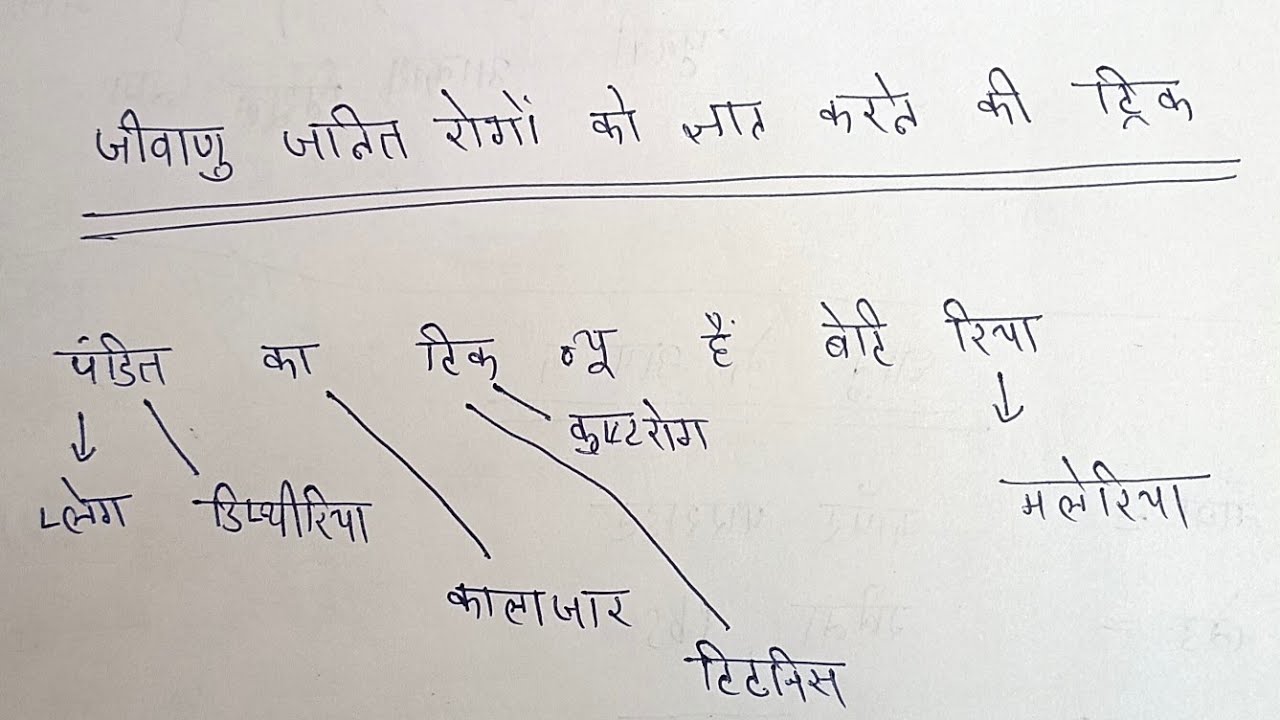 जीवाणु जनित रोगों को ज्ञात करने की ट्रिक
पंडित का टिक् न्यू हैं बेटि रिया
कुष्टरोग
प्लेग डिप्थीरिया मलेरिया
कालाजार
टिटनिस